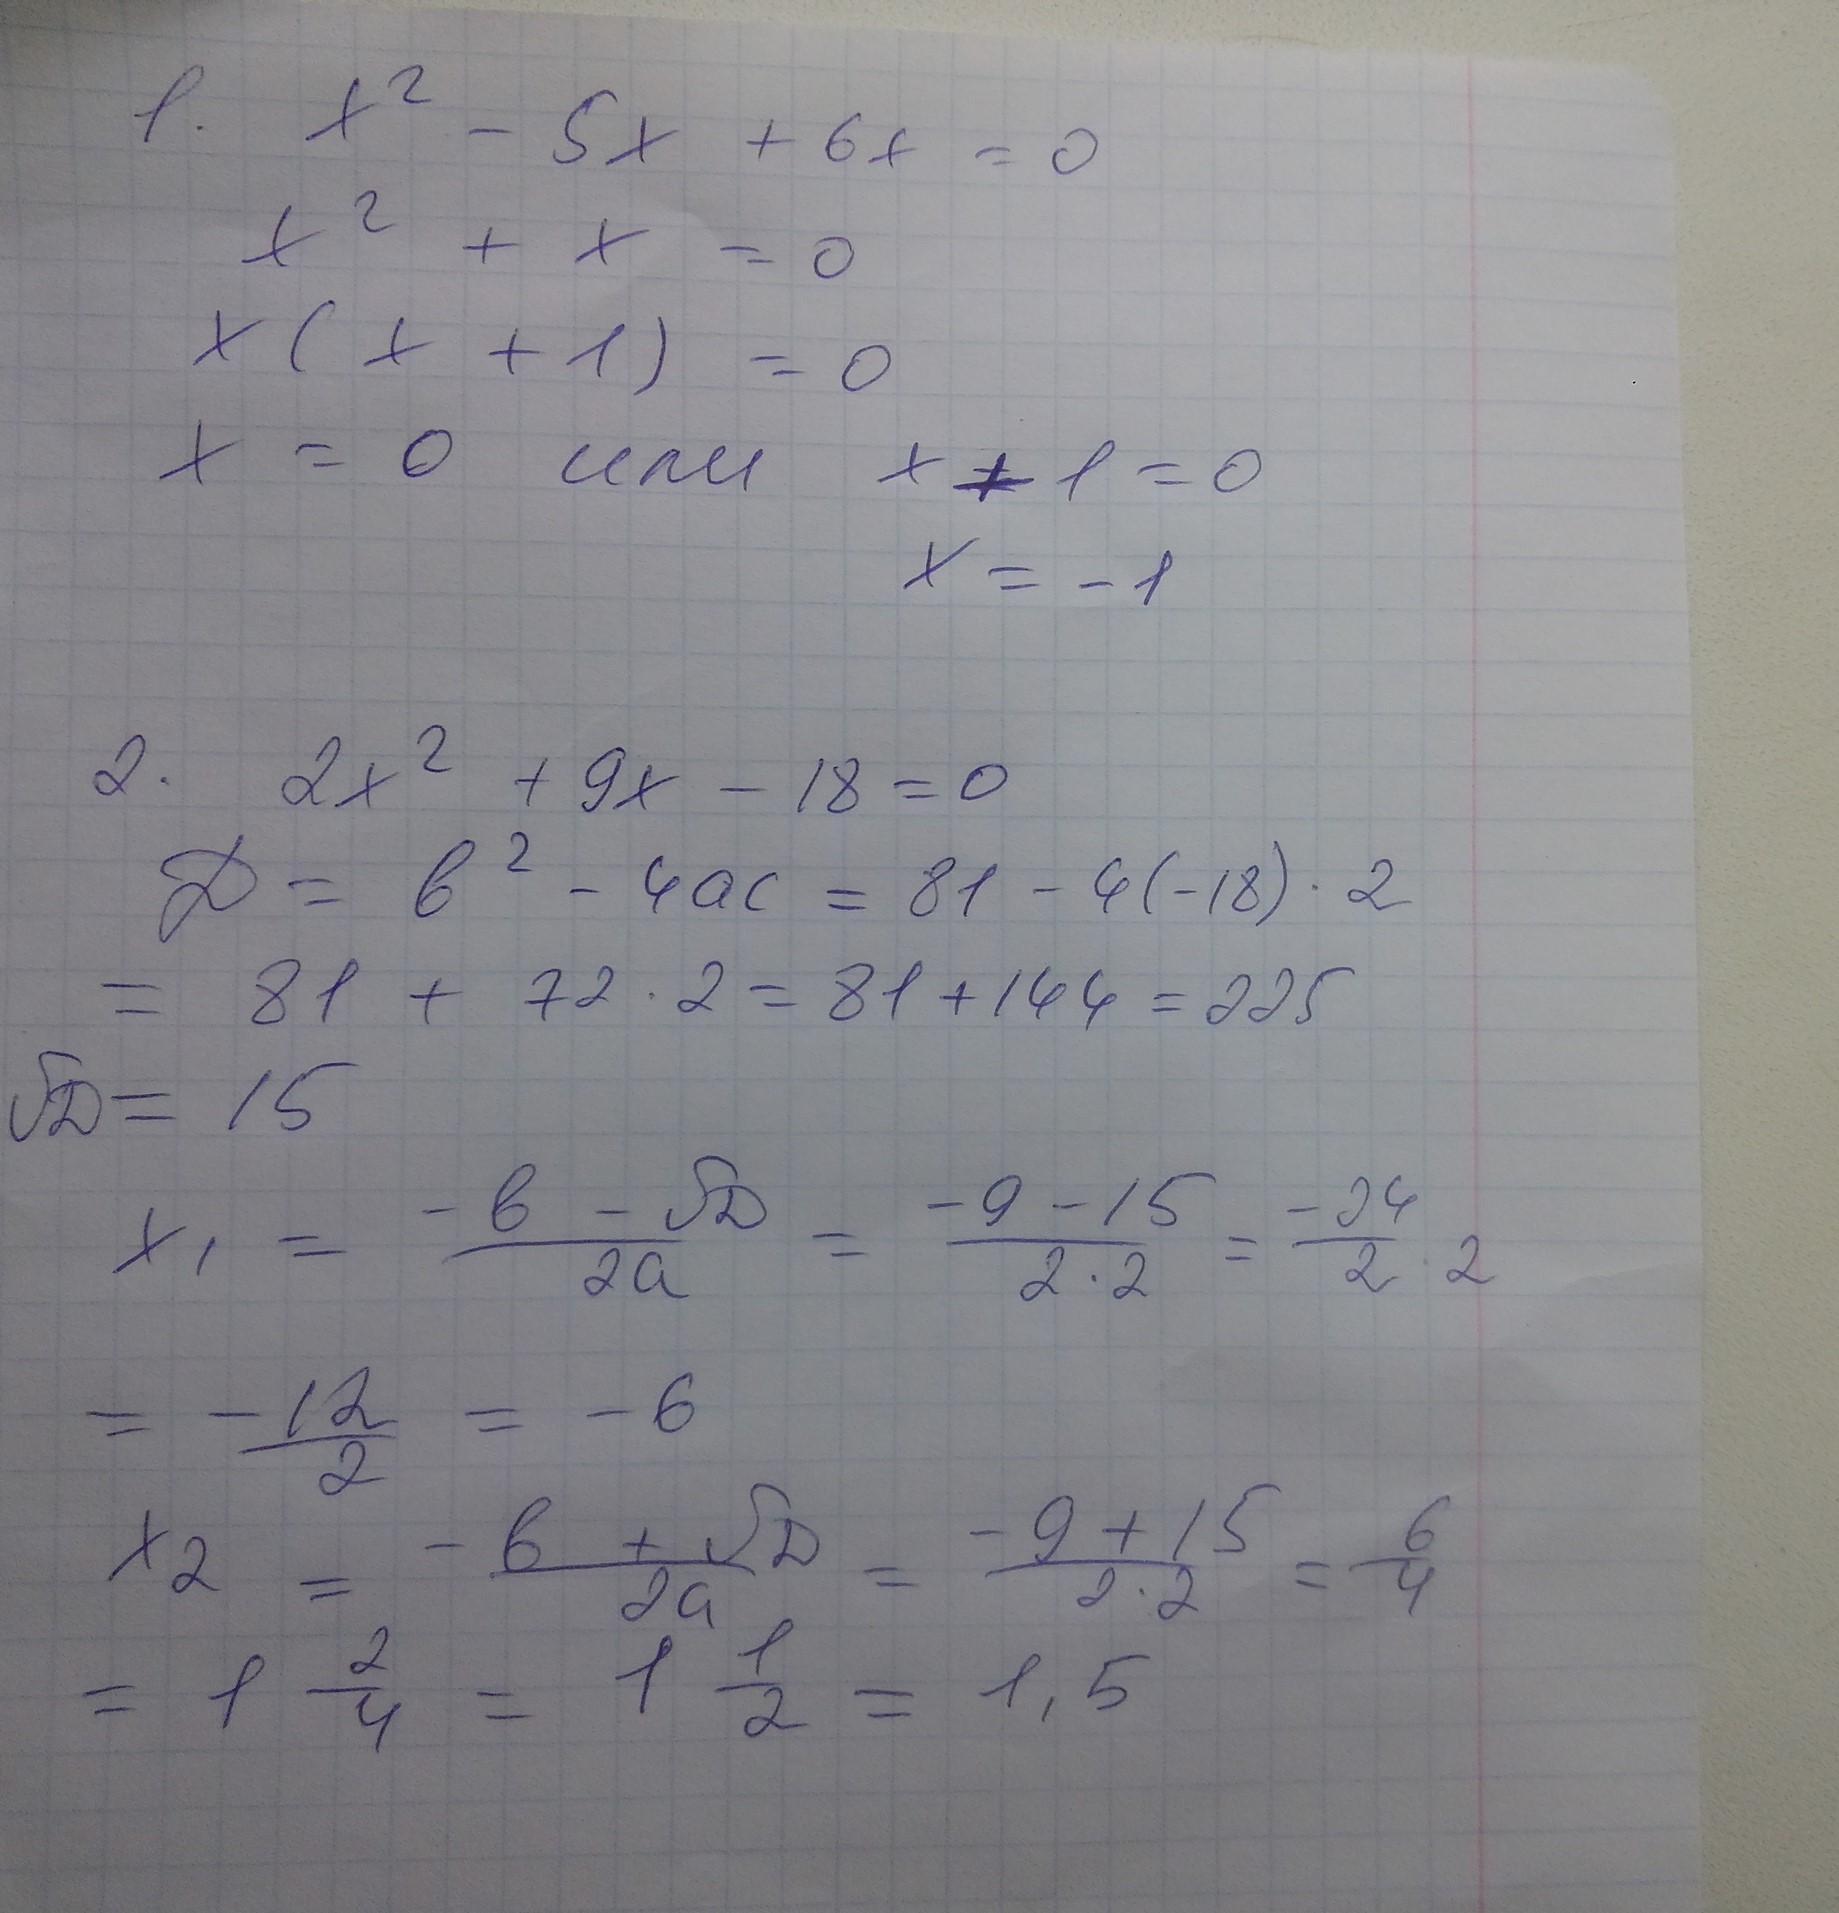 1. x² - 5x + 6x = 0
x² + x = 0
x(x + 1) = 0
x = 0 или x + 1 = 0
x = -1
2. 2x² + 9x - 18 = 0
D = b² - 4ac = 81 - 4(-18) · 2
= 81 + 72 · 2 = 81 + 144 = 225
√D = 15
x₁ = (-b - √D)/(2a) = (-9 - 15)/(2·2) = (-24)/(2·2)
= -12/2 = -6
x₂ = (-b + √D)/(2a) = (-9 + 15)/(2·2) = 6/4
= 1 2/4 = 1 1/2 = 1,5